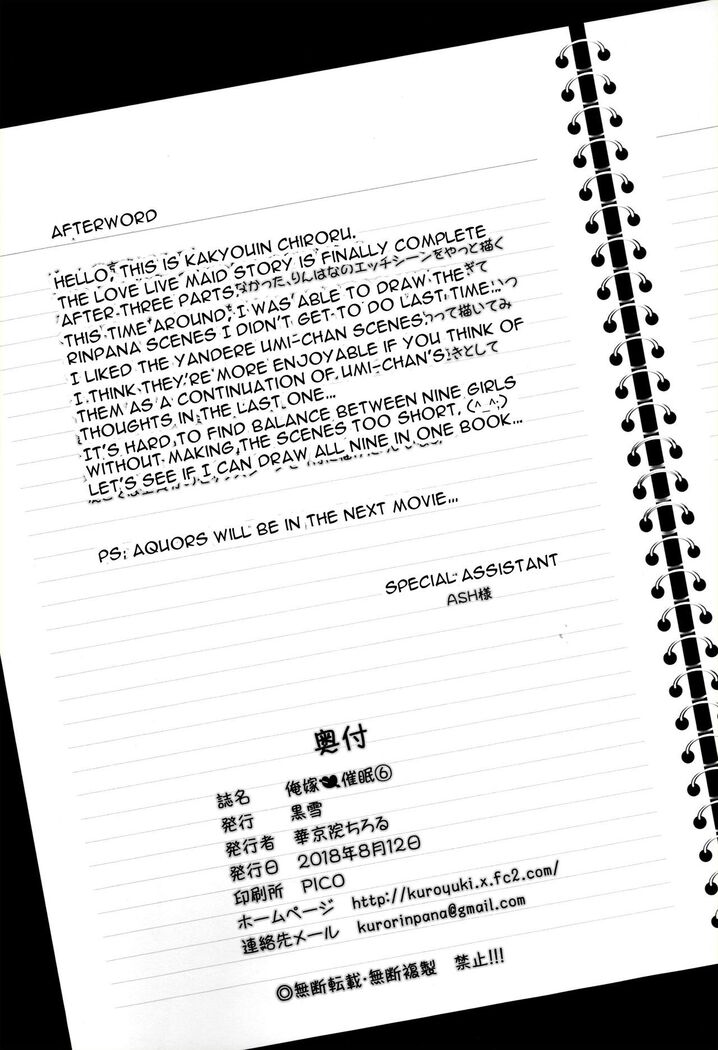 AFTERWORD
HELLO, THIS IS KAKYOUIN CHIRORU.
THE LOVE LIVE MAID STORY IS FINALLY COMPLETE
AFTER THREE PARTS. かった、りんぱなのエッチシーンをやっと描く
THIS TIME AROUND, I WAS ABLE TO DRAW THE ぎて
RINPANA SCENES I DIDN'T GET TO DO LAST TIME...
I LIKED THE YANDERE UMI-CHAN SCENES. って描いてみ
I THINK THEY'RE MORE ENJOYABLE IF YOU THINK OF
THEM AS A CONTINUATION OF UMI-CHAN'S きとして
THOUGHTS IN THE LAST ONE...
IT'S HARD TO FIND BALANCE BETWEEN NINE GIRLS
WITHOUT MAKING THE SCENES TOO SHORT, (^_^;)
LET'S SEE IF I CAN DRAW ALL NINE IN ONE BOOK...
PS: AQUORS WILL BE IN THE NEXT MOVIE...
SPECIAL ASSISTANT
ASH様
奥付
誌名 俺嫁催眠⑥
発行 黒雪
発行者 華京院ちろる
発行日 2018年8月12日
印刷所 PICO
ホームページ http://kuroyuki.x.fc2.com/
連絡先メール kurorinpana@gmail.com
◎無断転載・無断複製 禁止!!!